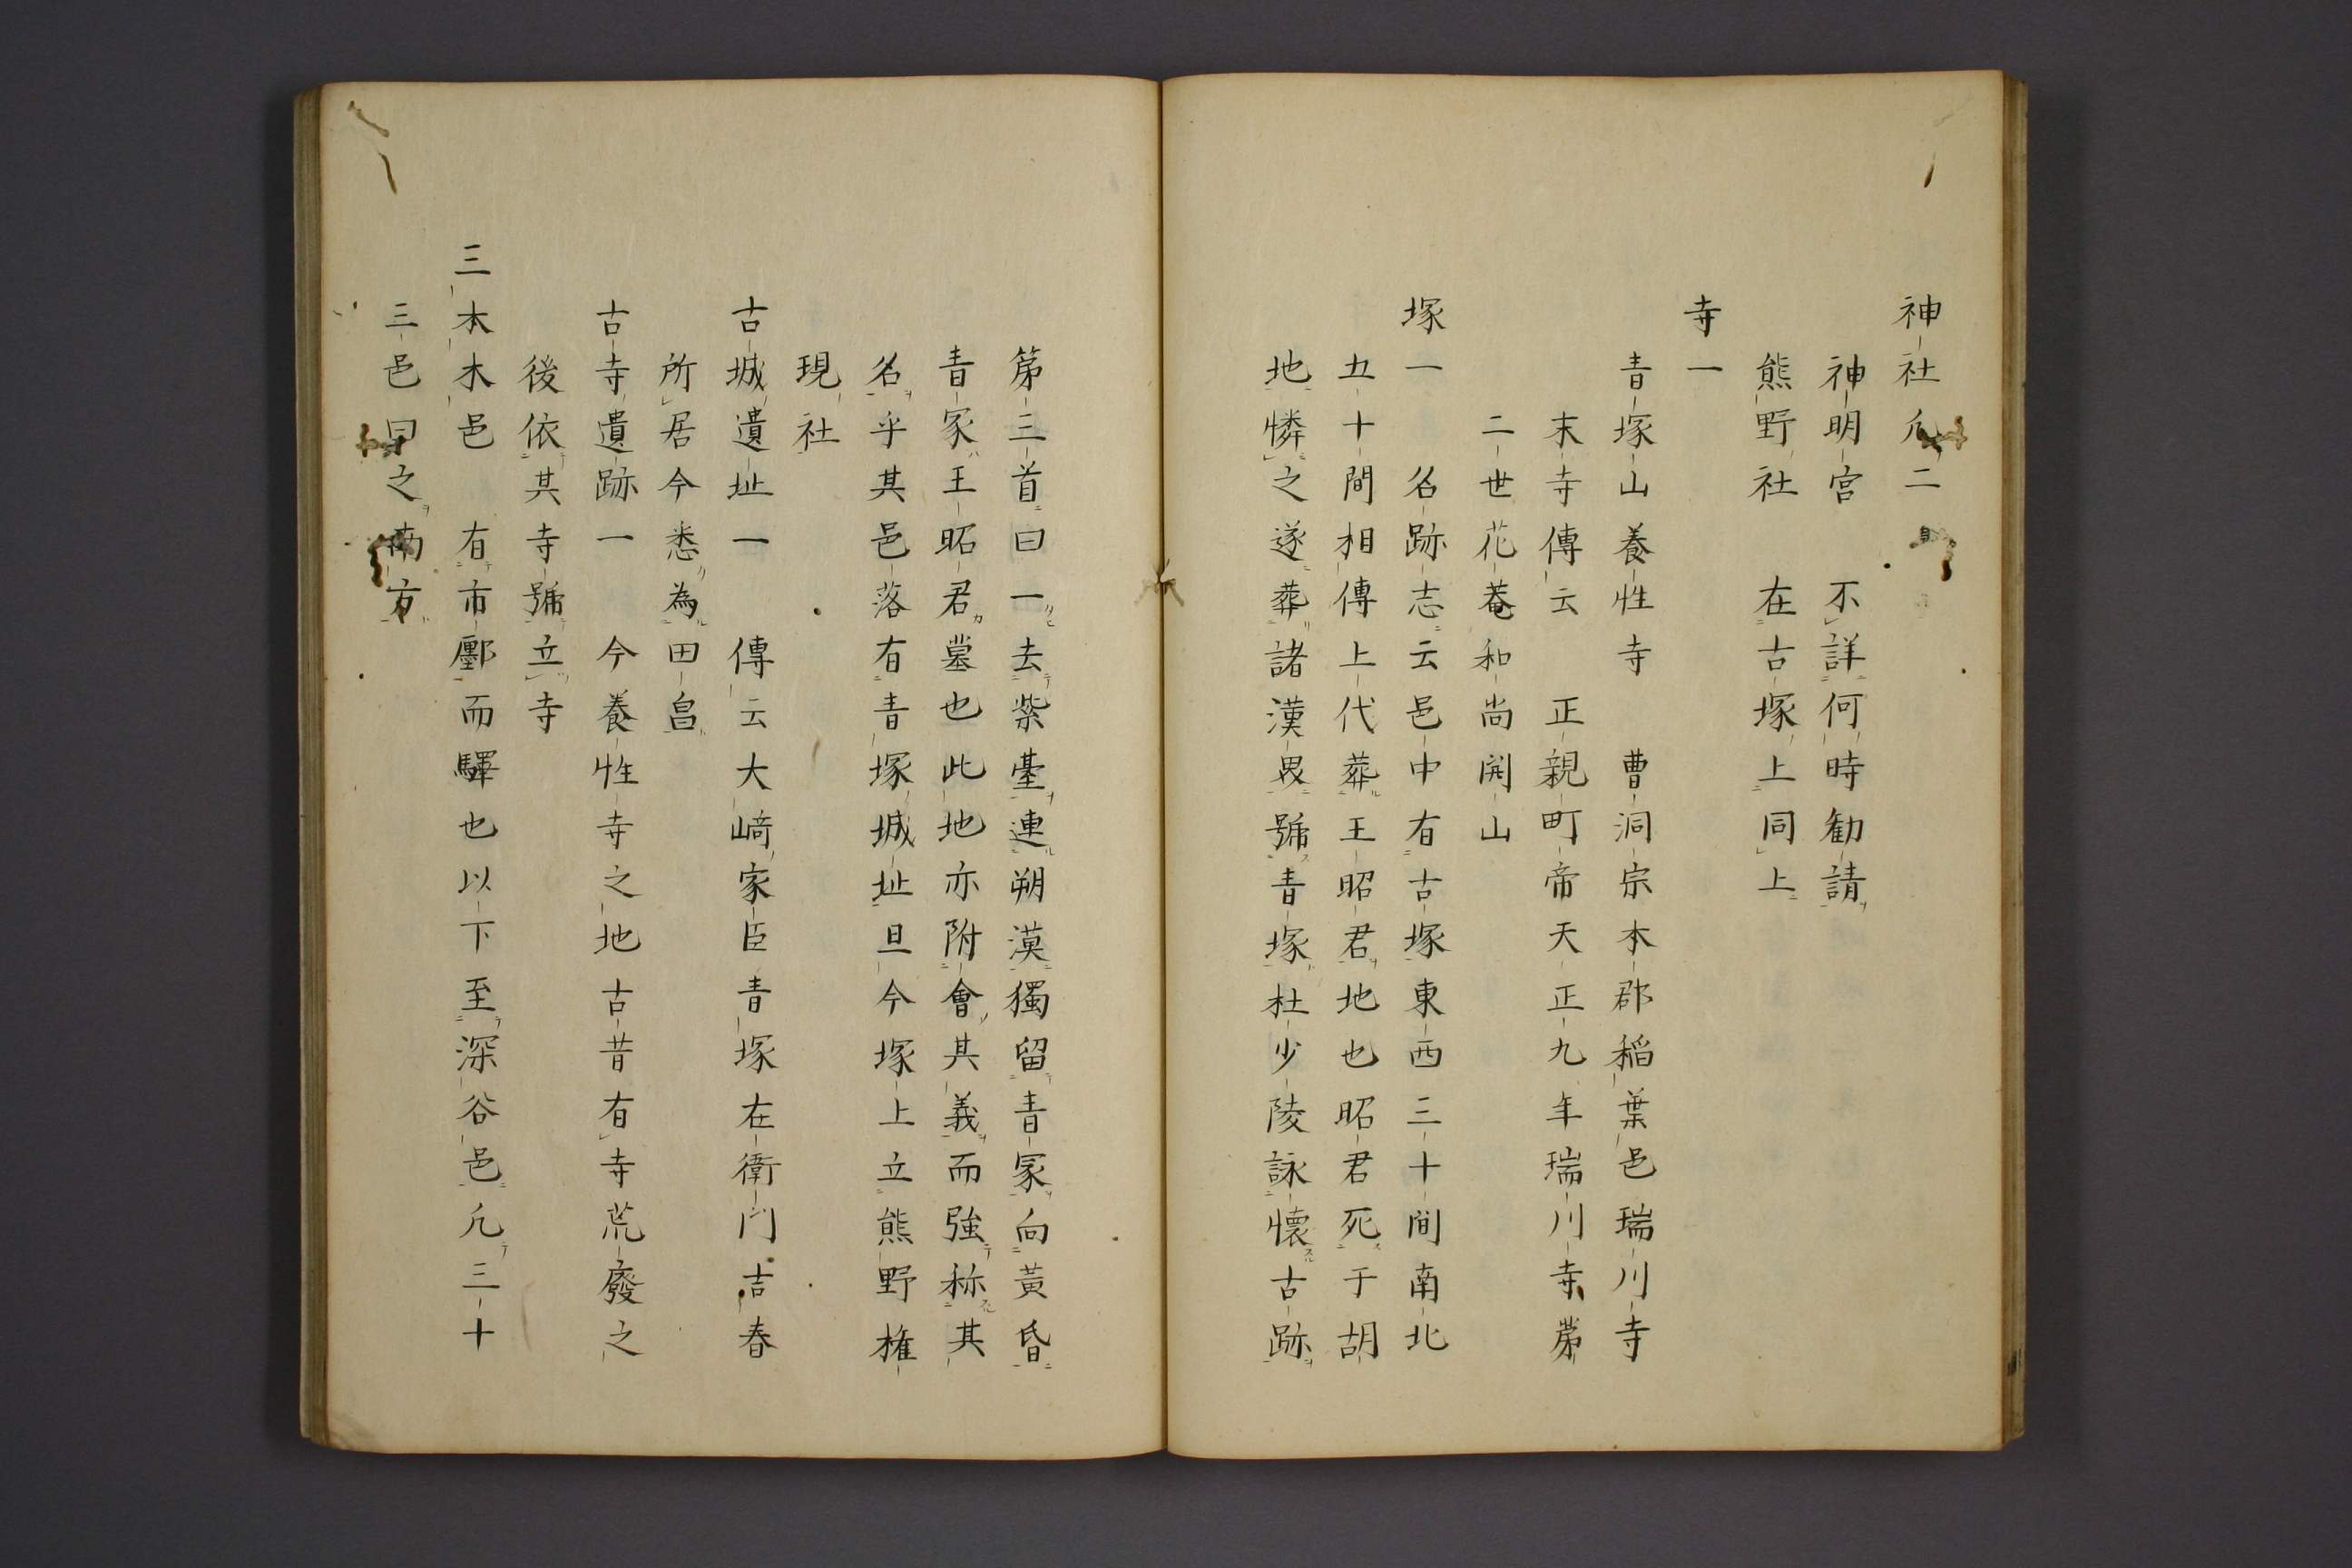 神社凡二
神明宮 不詳何時勧請
熊野社 在古塚上同上
寺一
青塚山養性寺 曹洞宗本郡稲葉邑瑞川寺
末寺傳云 正親町帝天正九年瑞川寺第
二世花菴和尚開山
塚一 名跡志云邑中有古塚東西三十間南北
五十間相傳上代葬王昭君地也昭君死于胡
地憐之遂葬諸漢畏號青塚杜少陵詠懐古跡
第三首曰一去紫臺連朔漠獨留青冢向黄昏
青冢王昭君墓也此地亦附會其義而強称其
名乎其邑落有青塚城址且今塚上立熊野権
現社
古城遺址一 傳云大﨑家臣青塚在衛門吉春
所居今悉為田畠
古寺遺跡一 今養性寺之地古昔有寺荒廢之
後依其寺號立寺
三本木邑 有市鄽而驛也以下至深谷邑凡三十
三邑曰之南方